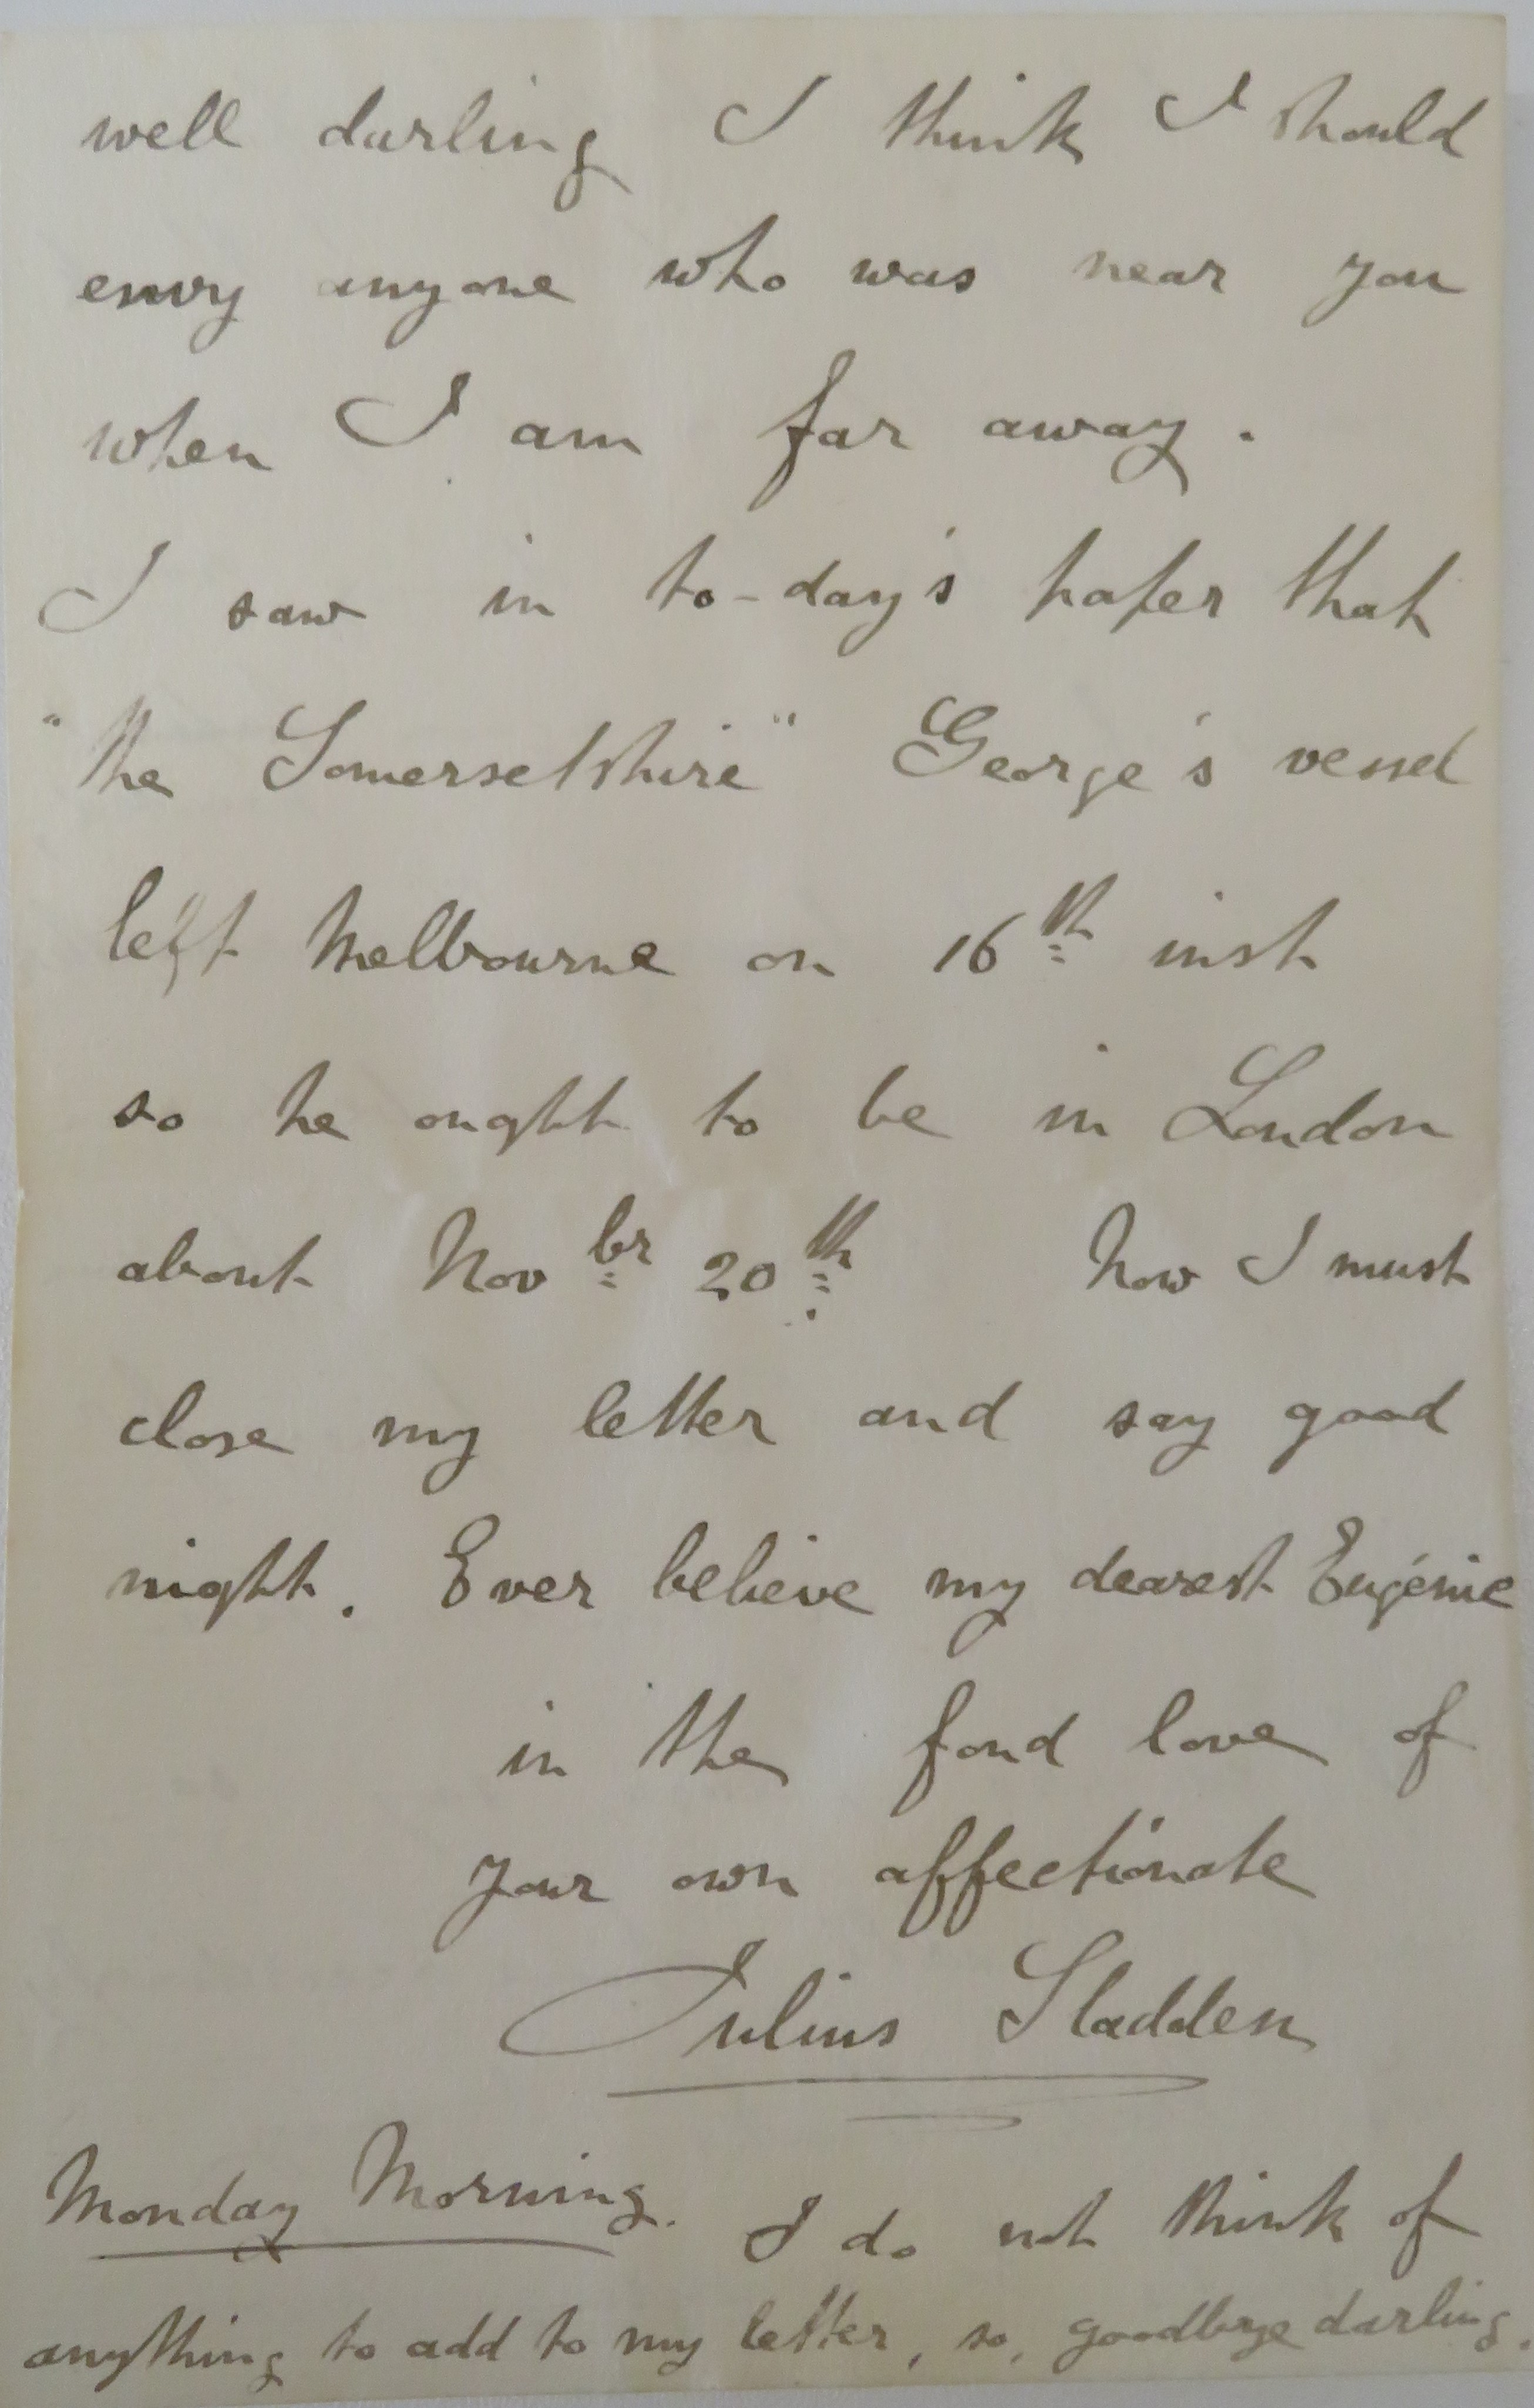 well darling I think I should
envy anyone who was near you
when I am far away.
I saw in to-day's paper that
"the Somersetshire" George's vessel
left Melbourne on 16th inst
so he ought to be in London
about Novbr 20th. Now I must
close my letter and say good
night. Ever believe my dearest Eugénie
in the fond love of
your own affectionate
Julius Sladden
Monday Morning. I do not think of
anything to add to my letter, so, goodbye darling.